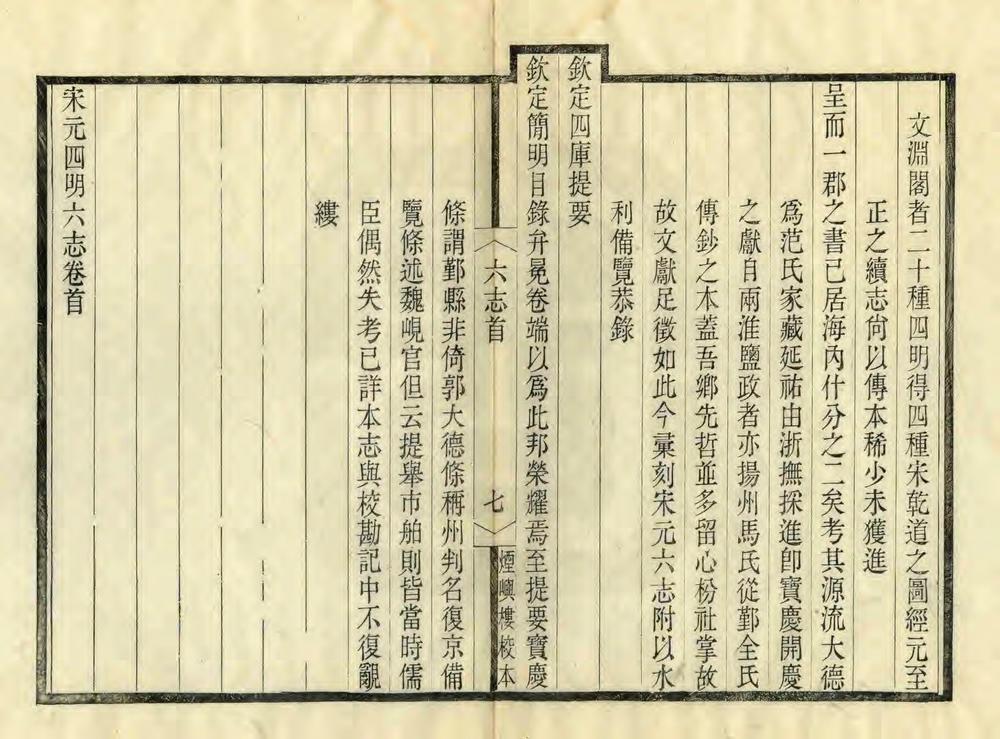 文淵閣者二十種四明得四種宋乾道之圖經元至
正之續志尙以傳本稀少未獲進
呈而一郡之書已居海內什分之二矣考其源流大德
爲范氏家藏延祐由浙撫採進卽寶慶開慶
之獻自兩淮鹽政者亦揚州馬氏從鄞全氏
傳鈔之本蓋吾鄉先哲並多留心枌社掌故
故文獻足徵如此今彙刻宋元六志附以水
利備覽恭錄
欽定四庫提要
欽定簡明目錄弁冕卷端以爲此邦榮耀焉至提要寶慶
六志首
七
煙嶼樓校本
條謂鄞縣非倚郭大德條稱州判名復京備
覽條述魏峴官但云提舉市舶則皆當時儒
臣偶然失考已詳本志與校勘記中不復覼
縷
宋元四明六志卷首